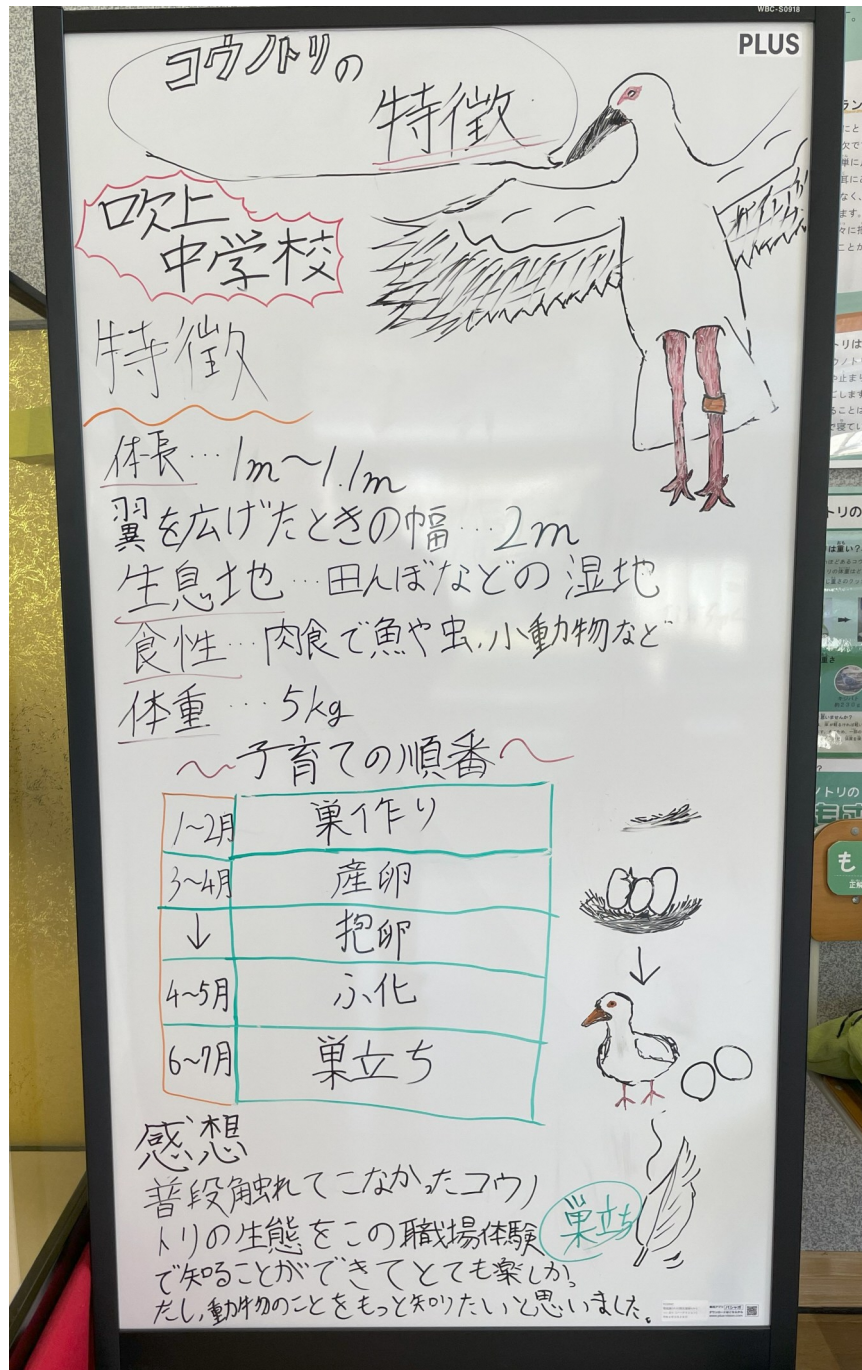 WBC-S0918
PLUS
コウノトリの
特徴
吹上
中学校
特徴
体長…1m〜1.1m
翼を広げたときの幅…2m
生息地…田んぼなどの湿地
食性…肉食で魚や虫、小動物など
体重…5kg
〜子育ての順番〜
1〜2月 巣作り
3〜4月 産卵
↓ 抱卵
4〜5月 ふ化
6〜7月 巣立ち
↓
感想
普段触れてこなかったコウノ
トリの生態をこの職場体験
で知ることができてとても楽しかっ
たし、動物のことをもっと知りたいと思いました。
巣立ち